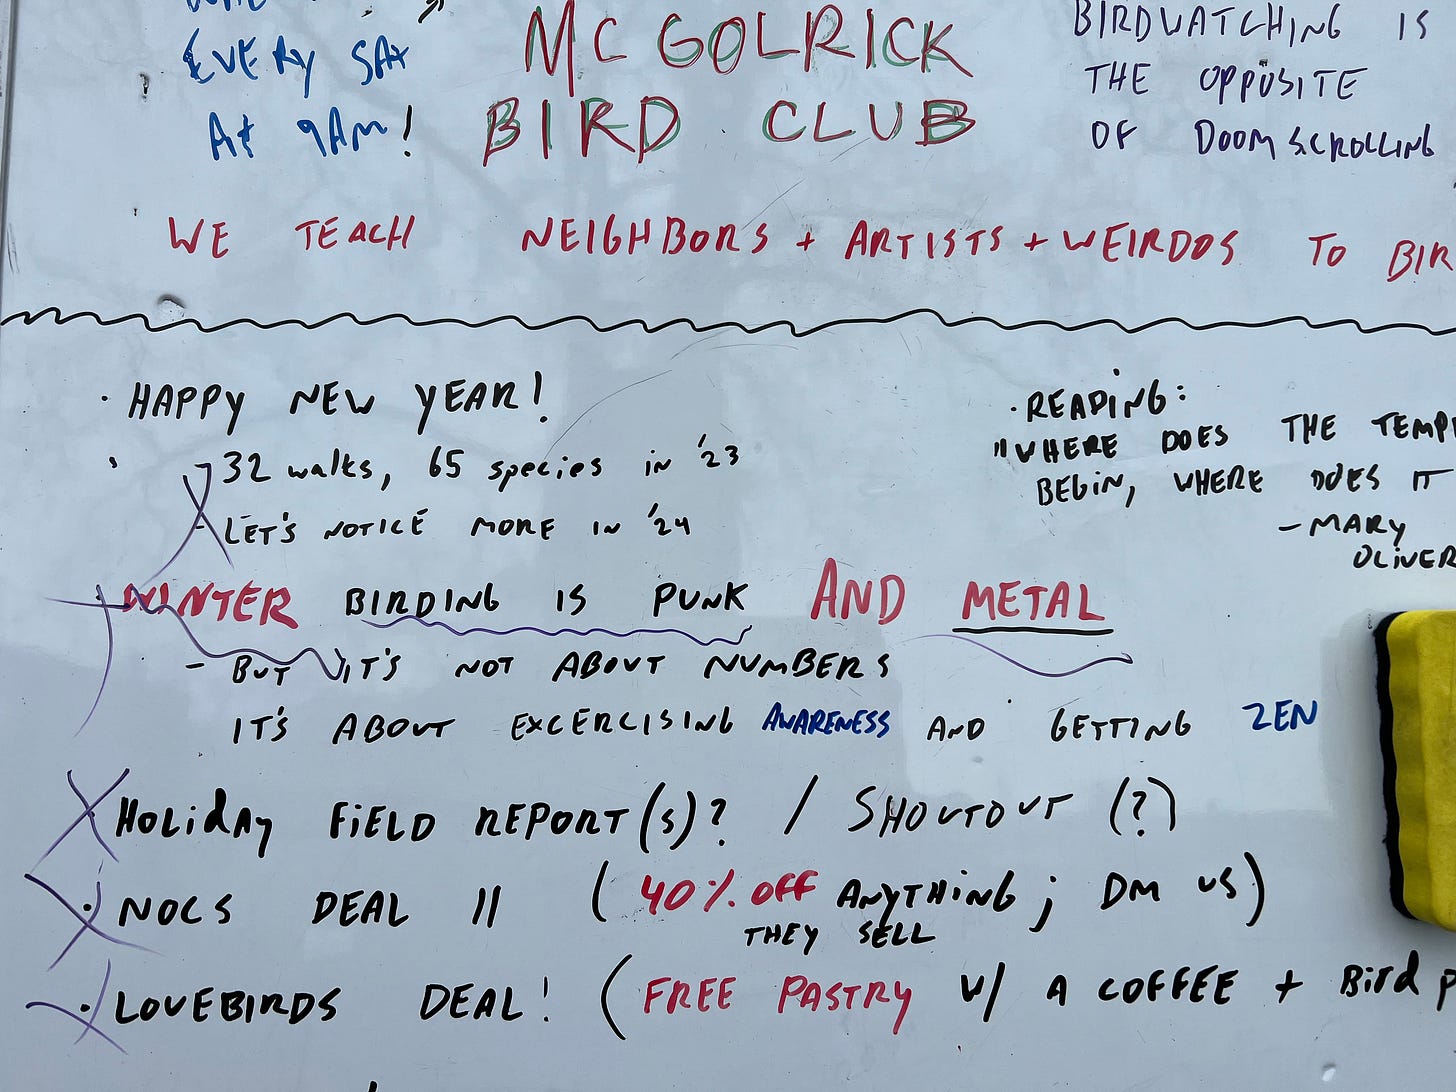 EVERY SAT
At 9AM!
MCGOLRICK
BIRD CLUB
BIRDWATCHING IS
THE OPPOSITE
OF DOOMSCROLLING
WE TEACH NEIGHBORS + ARTISTS + WEIRDOS TO BIR
· HAPPY NEW YEAR!
· - 32 walks, 65 species in '23
- LET'S NOTICE MORE IN '24
· WINTER BIRDING IS PUNK AND METAL
- BUT IT'S NOT ABOUT NUMBERS
IT'S ABOUT EXCERCISING AWARENESS AND GETTING ZEN
· HOLIDAY FIELD REPORT(S)? / SHOUTOUT (?)
· NOCS DEAL !! (40% OFF ANYTHING; DM US)
THEY SELL
· LOVEBIRDS DEAL! (FREE PASTRY W/ A COFFEE + Bird P
· READING:
"WHERE DOES THE TEMP
BEGIN, WHERE DOES IT
- MARY
OLIVER